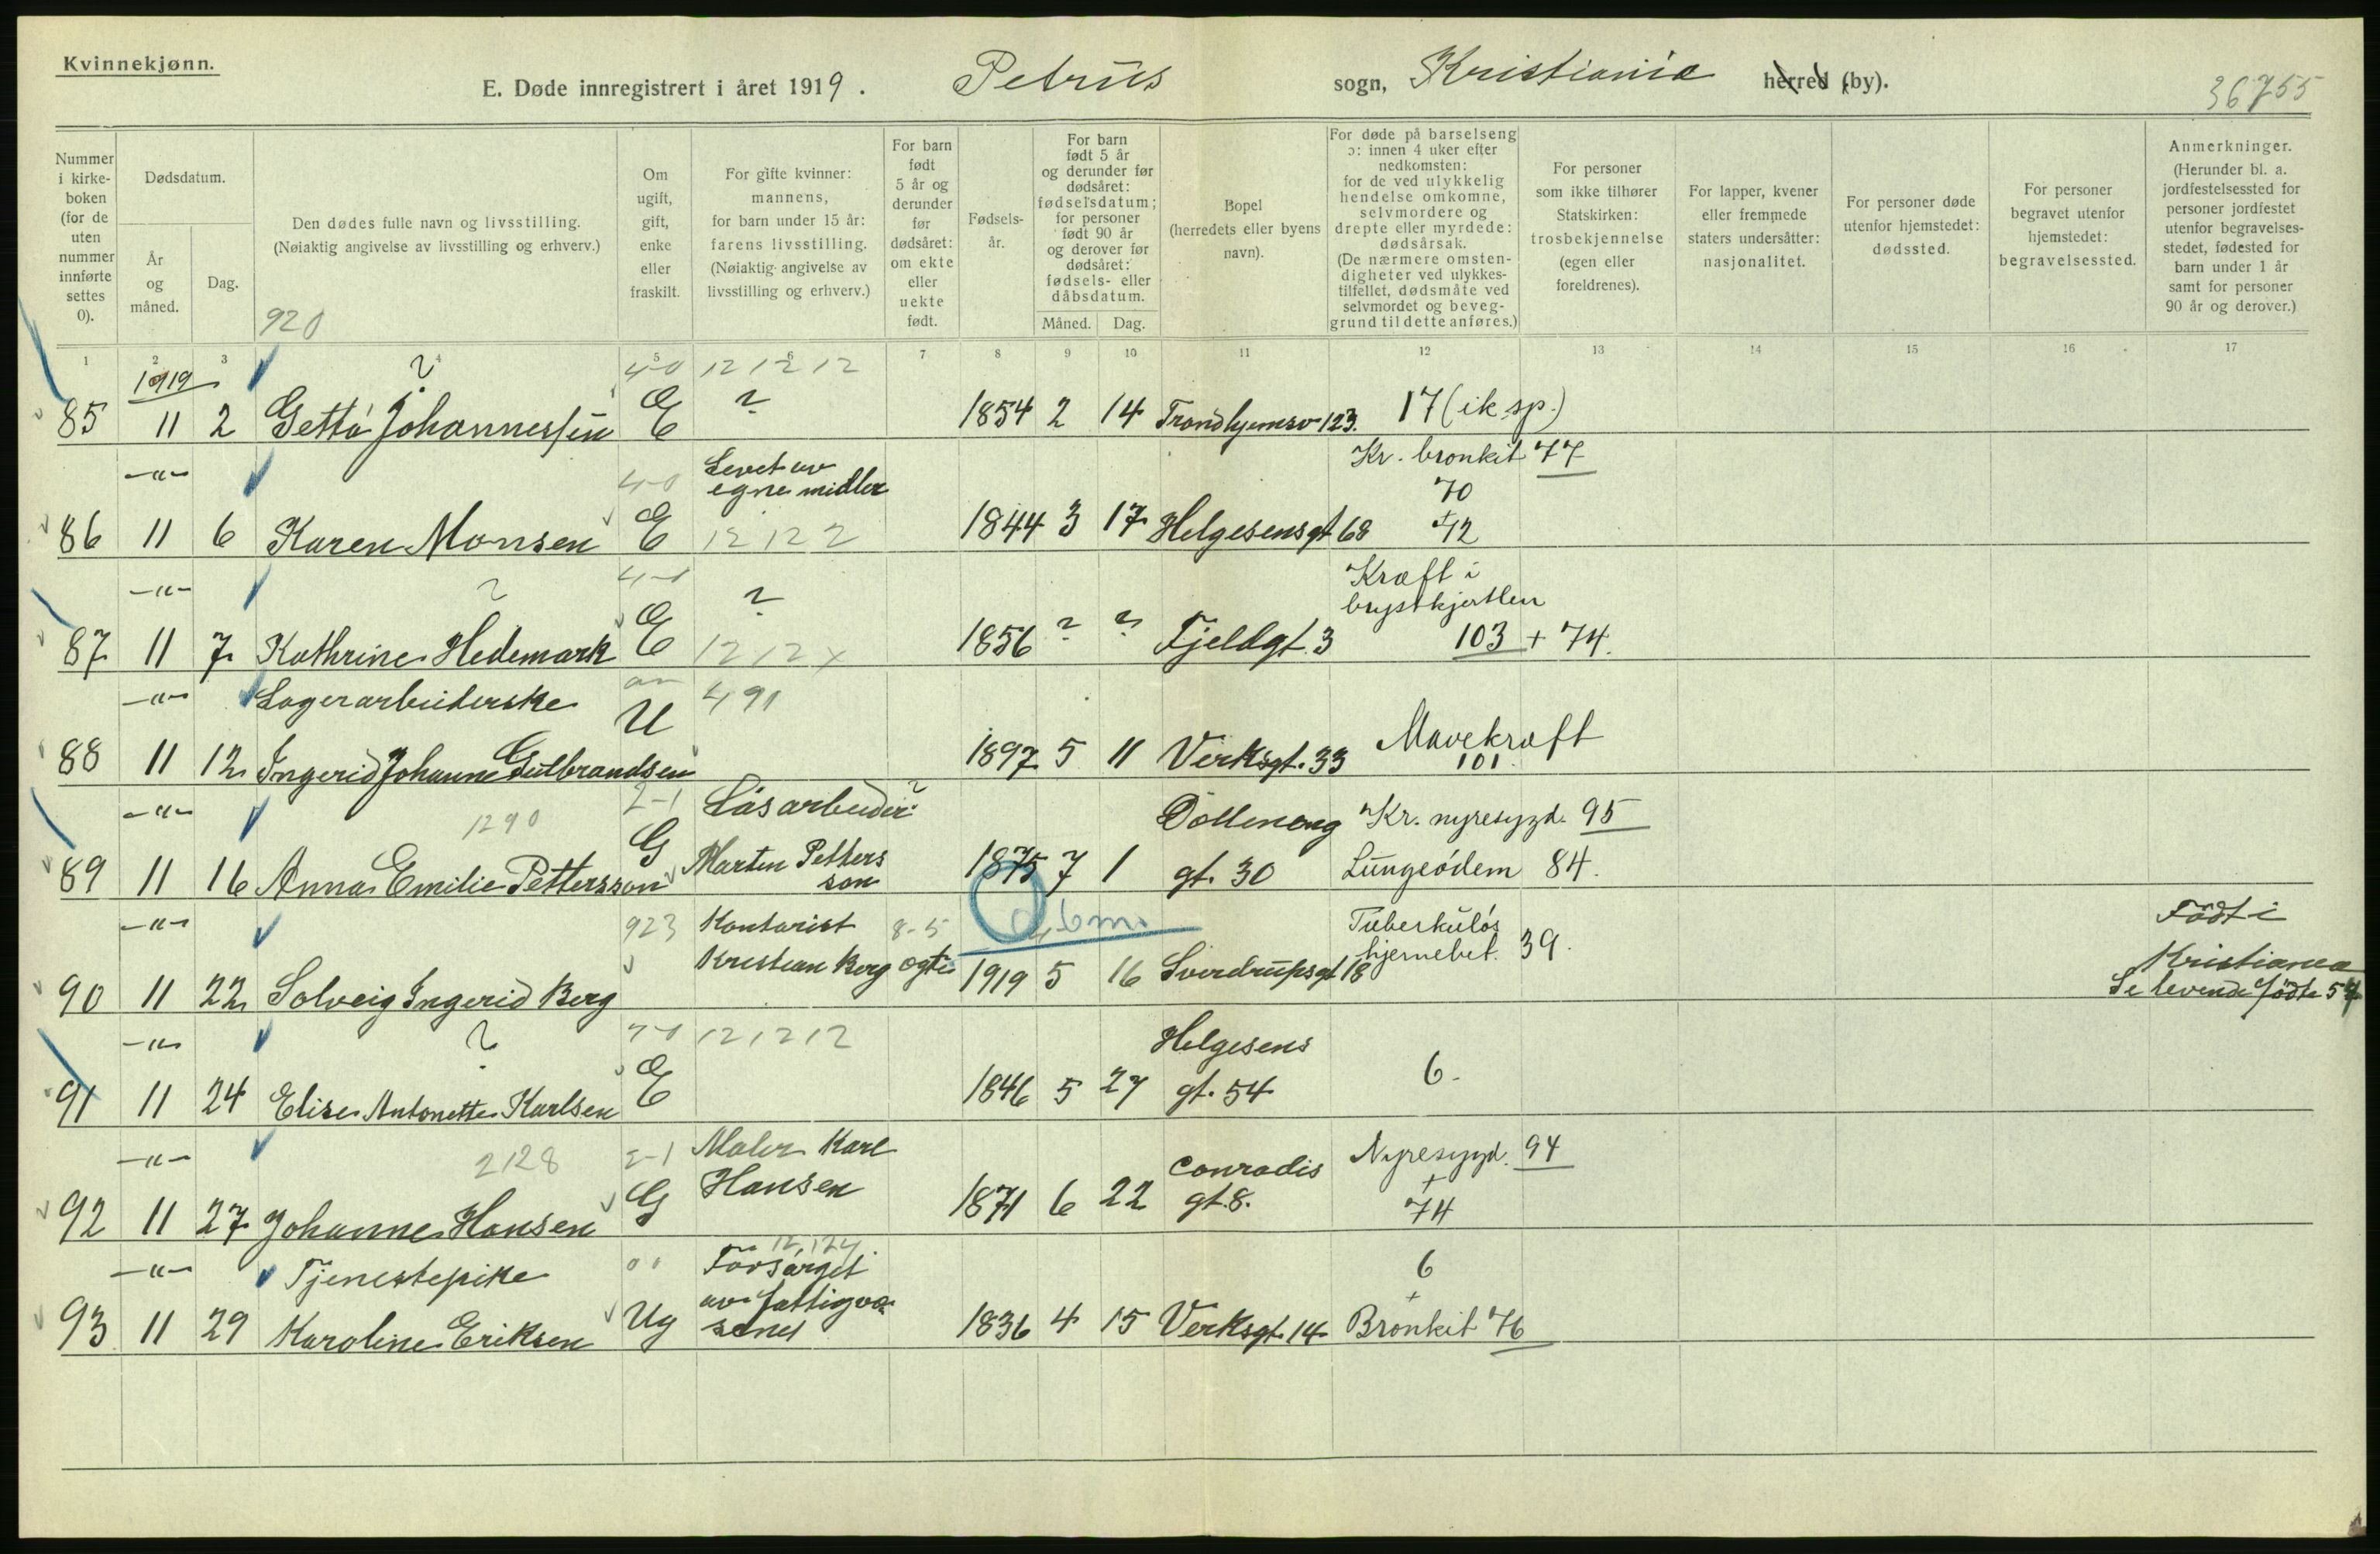 Kvinnekjønn.
E. Døde innregistrert i året 1919. Petrus sogn, Kristiania herred (by).
36755
Nummer i kirkeboken (for de uten nummer innførte settes 0).
Dødsdatum.
År og måned.
Dag.
Den dødes fulle navn og livsstilling.
(Nøiaktig angivelse av livsstilling og erhverv.)
920
Om ugift, gift, enke eller fraskilt.
For gifte kvinner: mannens, for barn under 15 år: farens livsstilling. (Nøiaktig angivelse av livsstilling og erhverv.)
For barn født 5 år og derunder før dødsåret: om ekte eller uekte født.
Fødsels-år.
For barn født 5 år og derunder før dødsåret: fødselsdatum; for personer født 90 år og derover før dødsåret: fødsels- eller dåbsdatum.
Måned. Dag.
Bopel (herredets eller byens navn).
For døde på barselseng ɔ: innen 4 uker efter nedkomsten: for de ved ulykkelig hendelse omkomne, selvmordere og drepte eller myrdede: dødsårsak. (De nærmere omstendigheter ved ulykkestilfellet, dødsmåte ved selvmordet og beveggrund til dette anføres.)
For personer som ikke tilhører Statskirken: trosbekjennelse (egen eller foreldrenes).
For lapper, kvener eller fremmede staters undersåtter: nasjonalitet.
For personer døde utenfor hjemstedet: dødssted.
For personer begravet utenfor hjemstedet: begravelsessted.
Anmerkninger. (Herunder bl. a. jordfestelsessted for personer jordfestet utenfor begravelsesstedet, fødested for barn under 1 år samt for personer 90 år og derover.)
1 2 3 4 5 6 7 8 9 10 11 12 13 14 15 16 17
1919 ? 4-0 12 12 12
85 11 2 Getta Johannessen E ? 1854 2 14 Trondhjemsv 123. 17 (ik. sp.)
-"- 4-0 Levet av egne midler Kr. bronkit 77
70 +
86 11 6 Karen Monsen E 12 12 2 1844 3 17 Helgesensgt 68 12
-"- ? 4-1 ? Kræft i brystkjertlen
87 11 7 Kathrine Hedemark E 12 12 x 1856 ? ? Fjeldgt. 3 103 + 74.
-"- Lagerarbeiderske U 491
88 11 12 Ingerid Johanne Gulbrandsen 1897 5 11 Verksgt. 33 Mavekræft 101
-"- 1290 2-1 Låsarbeider ? Dælleneng Kr. nyresygd. 95
89 11 16 Anna Emilie Pettersson G Martin Pettersson 1875 7 1 gt. 30 Lungeødem 84.
-"- 923 Kontorist 8-5 6 m. Tuberkuløs hjernebet. 39. Født i
90 11 22 Solveig Ingerid Berg Kristian Berg Ogte 1919 5 16 Sverdrupsgt 18 Kristiania
Se levende fødte 57
-"- ? 12 12 12 Helgesens
91 11 24 Elise Antonette Karlsen E 1846 5 27 gt. 54 6.
-"- 2128 2-1 Maler Karl Conradis Nyresygd. 94 +
92 11 27 Johanne Hansen G Hansen 1871 6 22 gt. 8. 74
-"- Tjenestepike 0 0 12, 124 Forsørget 6 +
93 11 29 Karoline Eriksen Ug av fattigvæsenet 1836 4 15 Verksgt. 14 Bronkit 76